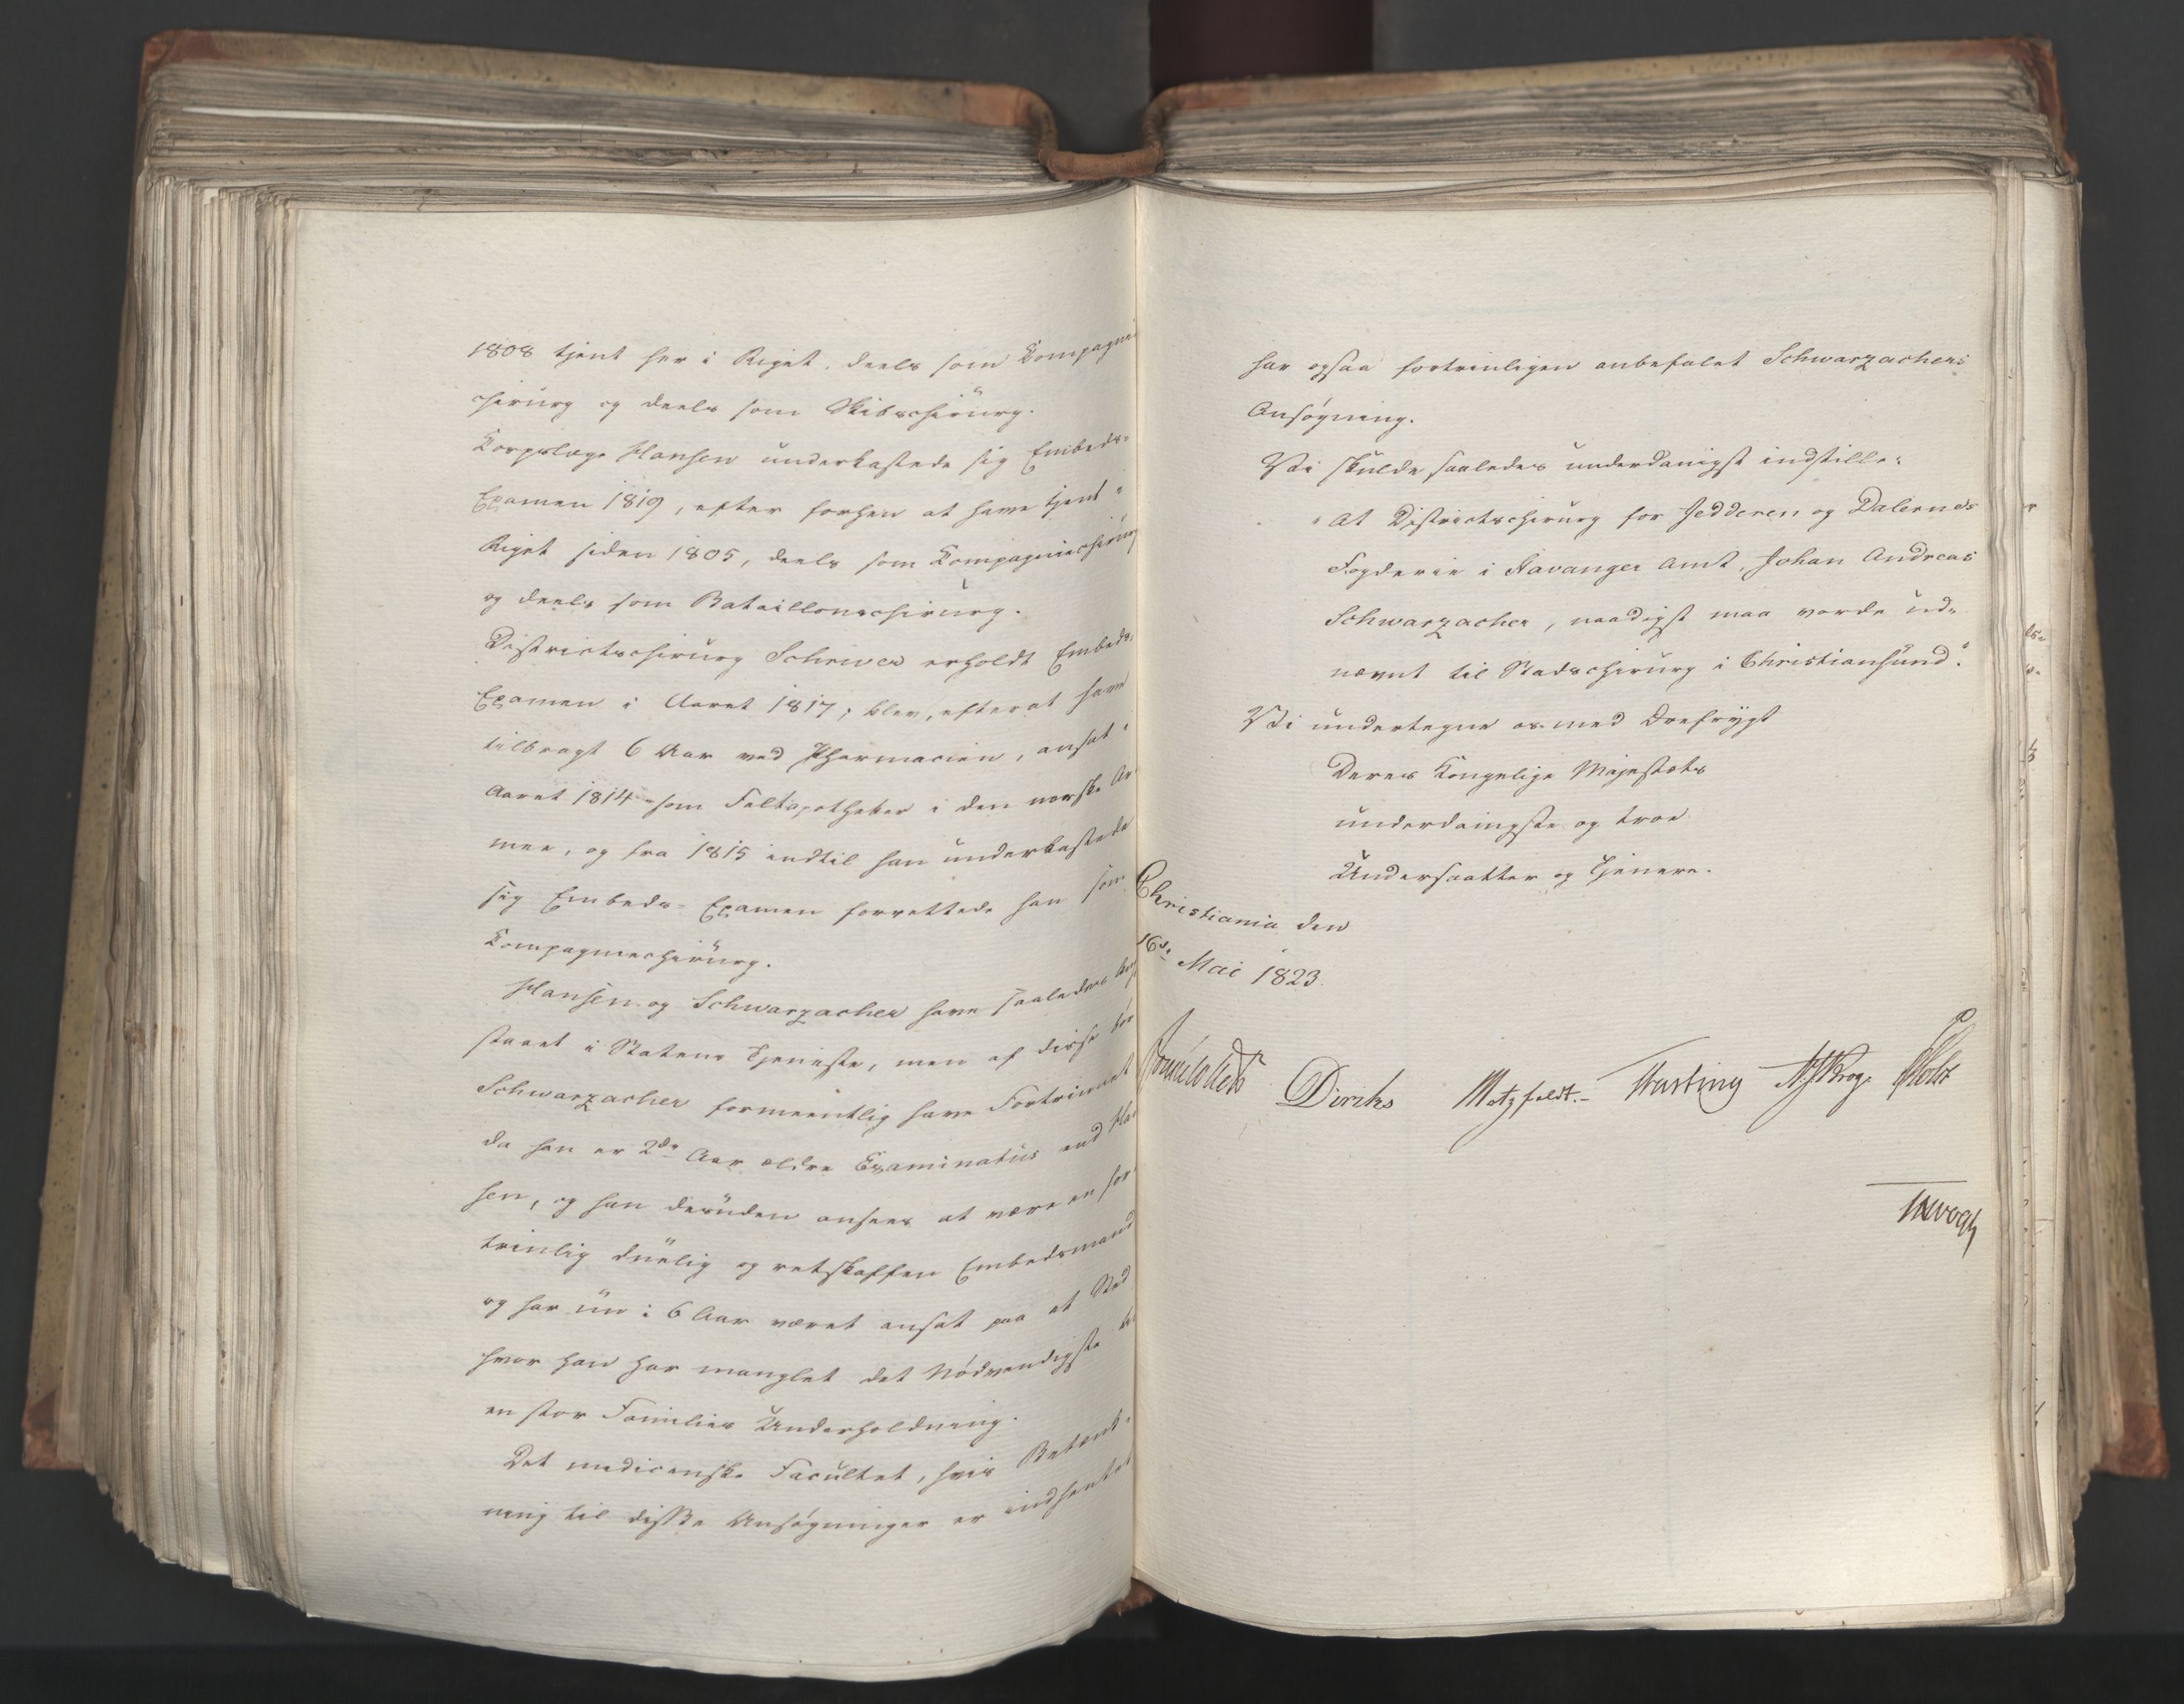 1808 tjent her i Riget, deels som Kompagnie
chirurg og deels som Skibschirurg.
Korpslæge Hansen underkastede sig Embeds-
Examen 1819, efter forhen at have tjent i
Riget siden 1805, deels som Kompagniechirurg
og deels som Bataillonschirurg.
Districtschirurg Schriwer erholdt Embeds-
Examen i Aaret 1817, blev, efterat have
tilbragt 6 Aar ved Pharmacien, ansat i
Aaret 1814 som Feltapotheker i den norske Ar-
mee, og fra 1815 indtil han underkastede
sig Embeds-Examen forrettede han som
Kompagniechirurg.
Hansen og Schwarzacher have saaledes
staaet i Statens Tjeneste, men af disse bør
Schwarzacher formeentlig have Fortrinnet
da han er 2de Aar ældre Examinatus end Han
sen, og han desuden ansees at være en for
trinlig duelig og retskaffen Embedsmand
og har nu i 6 Aar været ansat paa et Sted
hvor han har manglet det Nødvendigste til
en stor Families Underholdning.
Det medicinske Facultet, hvis Betænk-
ning til disse Ansøgninger er indhentet
har ogsaa fortrinligen anbefalet Schwarzachers
Ansøgning.
Vi skulde saaledes underdanigst indstille:
"At Districtschirurg for Jedderen og Dalernes
Fogderie i Stavanger Amt, Johan Andreas
Schwarzacher, naadigst maa vorde ud-
nævnt til Stadschirurg i Christiansund."
Vi undertegne os med Ærefrygt
Deres Kongelige Majestæts
underdanigste og troe
Undersaatter og Tjenere.
Christiania den
16de Mai 1823.
Sommerhielm Diriks Motzfeldt. Fasting N. J. Krog. P Holst
J H Vogt